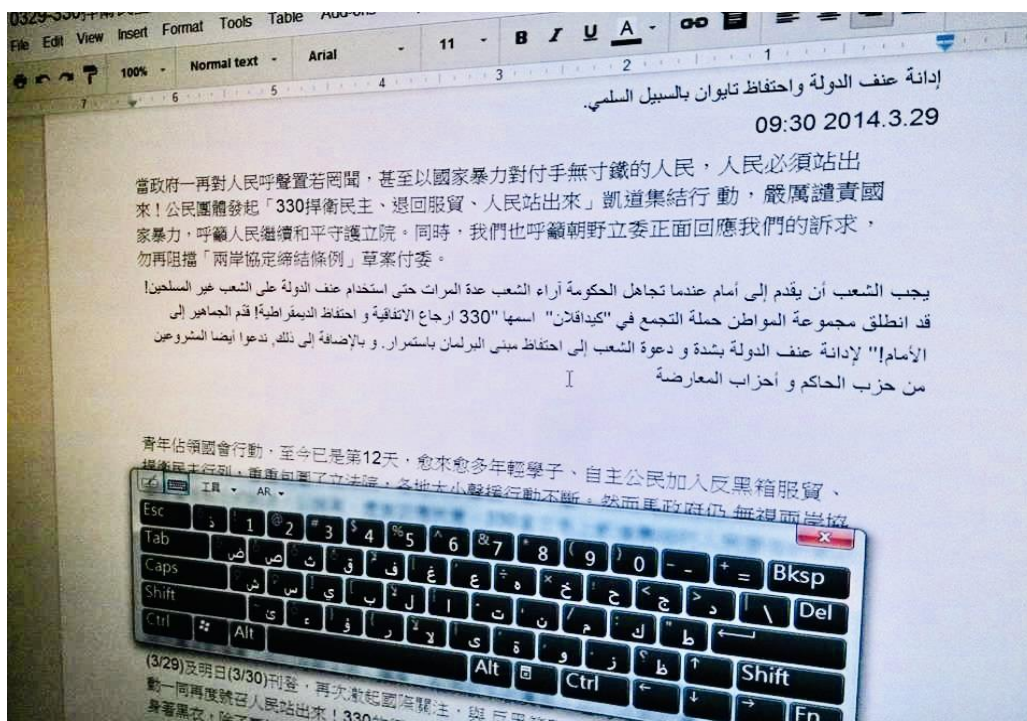 0329-330捍衛民主
File Edit View Insert Format Tools Table Add-ons
100% Normal text Arial 11 B I U A
7 6 5 4 3 2 1
إدانة عنف الدولة واحتفاظ تايوان بالسبيل السلمي.
09:30 2014.3.29
當政府一再對人民呼聲置若罔聞，甚至以國家暴力對付手無寸鐵的人民，人民必須站出
來！公民團體發起「330捍衛民主、退回服貿、人民站出來」凱道集結行 動，嚴厲譴責國
家暴力，呼籲人民繼續和平守護立院。同時，我們也呼籲朝野立委正面回應我們的訴求，
勿再阻擋「兩岸協定締結條例」草案付委。
يجب الشعب أن يقدم إلى أمام عندما تجاهل الحكومة آراء الشعب عدة المرات حتى استخدام عنف الدولة على الشعب غير المسلحين!
قد انطلق مجموعة المواطن حملة التجمع في "كيداقلان" اسمها "330 ارجاع الاتفاقية و احتفاظ الديمقراطية! قدّم الجماهير إلى
الأمام!" لإدانة عنف الدولة بشدة و دعوة الشعب إلى احتفاظ مبنى البرلمان باستمرار. و بالإضافة إلى ذلك, ندعوا أيضا المشروعين
من حزب الحاكم و أحزاب المعارضة
青年佔領國會行動，至今已是第12天，愈來愈多年輕學子、自主公民加入反黑箱服貿、
捍衛民主行列，重重包圍了立法院，各地大小聲援行動不斷。然而馬政府仍 無視兩岸協
工具 AR
Esc ذ ! 1 @ 2 # 3 $ 4 % 5 ^ 6 & 7 * 8 ( 9 ) 0 _ - + = Bksp
Tab ض ص ث ق ف غ ع ه خ ح ج د \ Del
Caps ش س ي ب ل ا ت ن م ك ط
Shift ئ ء ؤ ر لا ى ة و ز ظ Shift
Ctrl Alt Alt Ctrl Fn
(3/29)及明日(3/30)刊登，再次激起國際關注，與 反黑箱
動一同再度號召人民站出來！330
身著黑衣，除了